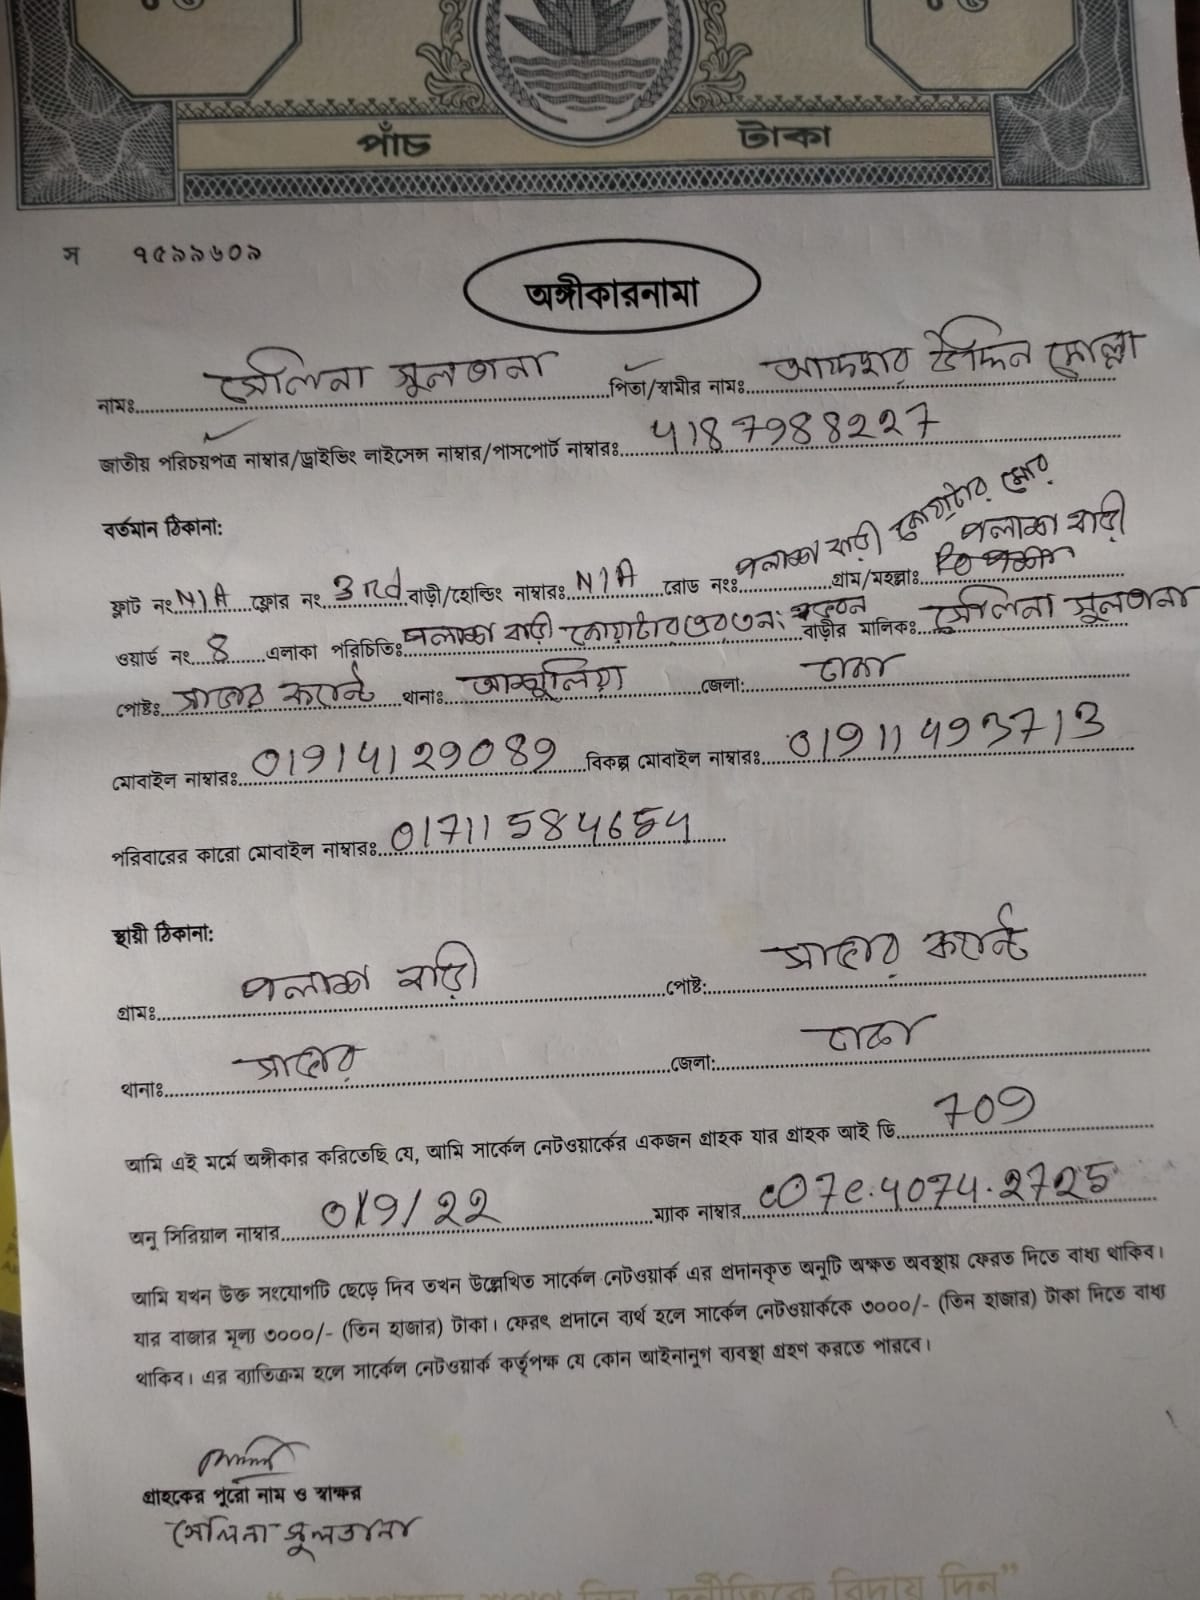 পাঁচ টাকা
স ৭৫৯৯৬০৯
অঙ্গীকারনামা
নামঃ সেলিনা সুলতানা পিতা/স্বামীর নামঃ আফছার উদ্দিন মোল্লা
জাতীয় পরিচয়পত্র নাম্বার/ড্রাইভিং লাইসেন্স নাম্বার/পাসপোর্ট নাম্বারঃ 4187988227
বর্তমান ঠিকানা:
ফ্লাট নং N/A ফ্লোর নং 3rd বাড়ী/হোল্ডিং নাম্বারঃ N/A রোড নংঃ পলাশ বাড়ী মোড় গ্রাম/মহল্লাঃ পলাশ বাড়ী
ওয়ার্ড নং 8 এলাকা পরিচিতিঃ পলাশ বাড়ী বাড়ীর মালিকঃ সেলিনা সুলতানা
পোষ্টঃ সাভার ক্যান্ট থানাঃ আশুলিয়া জেলা: ঢাকা
মোবাইল নাম্বারঃ 01914129089 বিকল্প মোবাইল নাম্বারঃ 01911493713
পরিবারের কারো মোবাইল নাম্বারঃ 01711584654
স্থায়ী ঠিকানা:
গ্রামঃ পলাশ বাড়ী পোষ্ট: সাভার ক্যান্ট
থানাঃ সাভার জেলা: ঢাকা
আমি এই মর্মে অঙ্গীকার করিতেছি যে, আমি সার্কেল নেটওয়ার্কের একজন গ্রাহক যার গ্রাহক আই ডি 709
অনু সিরিয়াল নাম্বার /9/22 ম্যাক নাম্বার c07e.4074.2725
আমি যখন উক্ত সংযোগটি ছেড়ে দিব তখন উল্লেখিত সার্কেল নেটওয়ার্ক এর প্রদানকৃত অনুটি অক্ষত অবস্থায় ফেরত দিতে বাধ্য থাকিব।
যার বাজার মূল্য ৩০০০/- (তিন হাজার) টাকা। ফেরৎ প্রদানে ব্যর্থ হলে সার্কেল নেটওয়ার্ককে ৩০০০/- (তিন হাজার) টাকা দিতে বাধ্য
থাকিব। এর ব্যতিক্রম হলে সার্কেল নেটওয়ার্ক কর্তৃপক্ষ যে কোন আইনানুগ ব্যবস্থা গ্রহণ করতে পারবে।
গ্রাহকের পুরো নাম ও স্বাক্ষর
সেলিনা সুলতানা
দুর্নীতিকে বিদায় দিন"